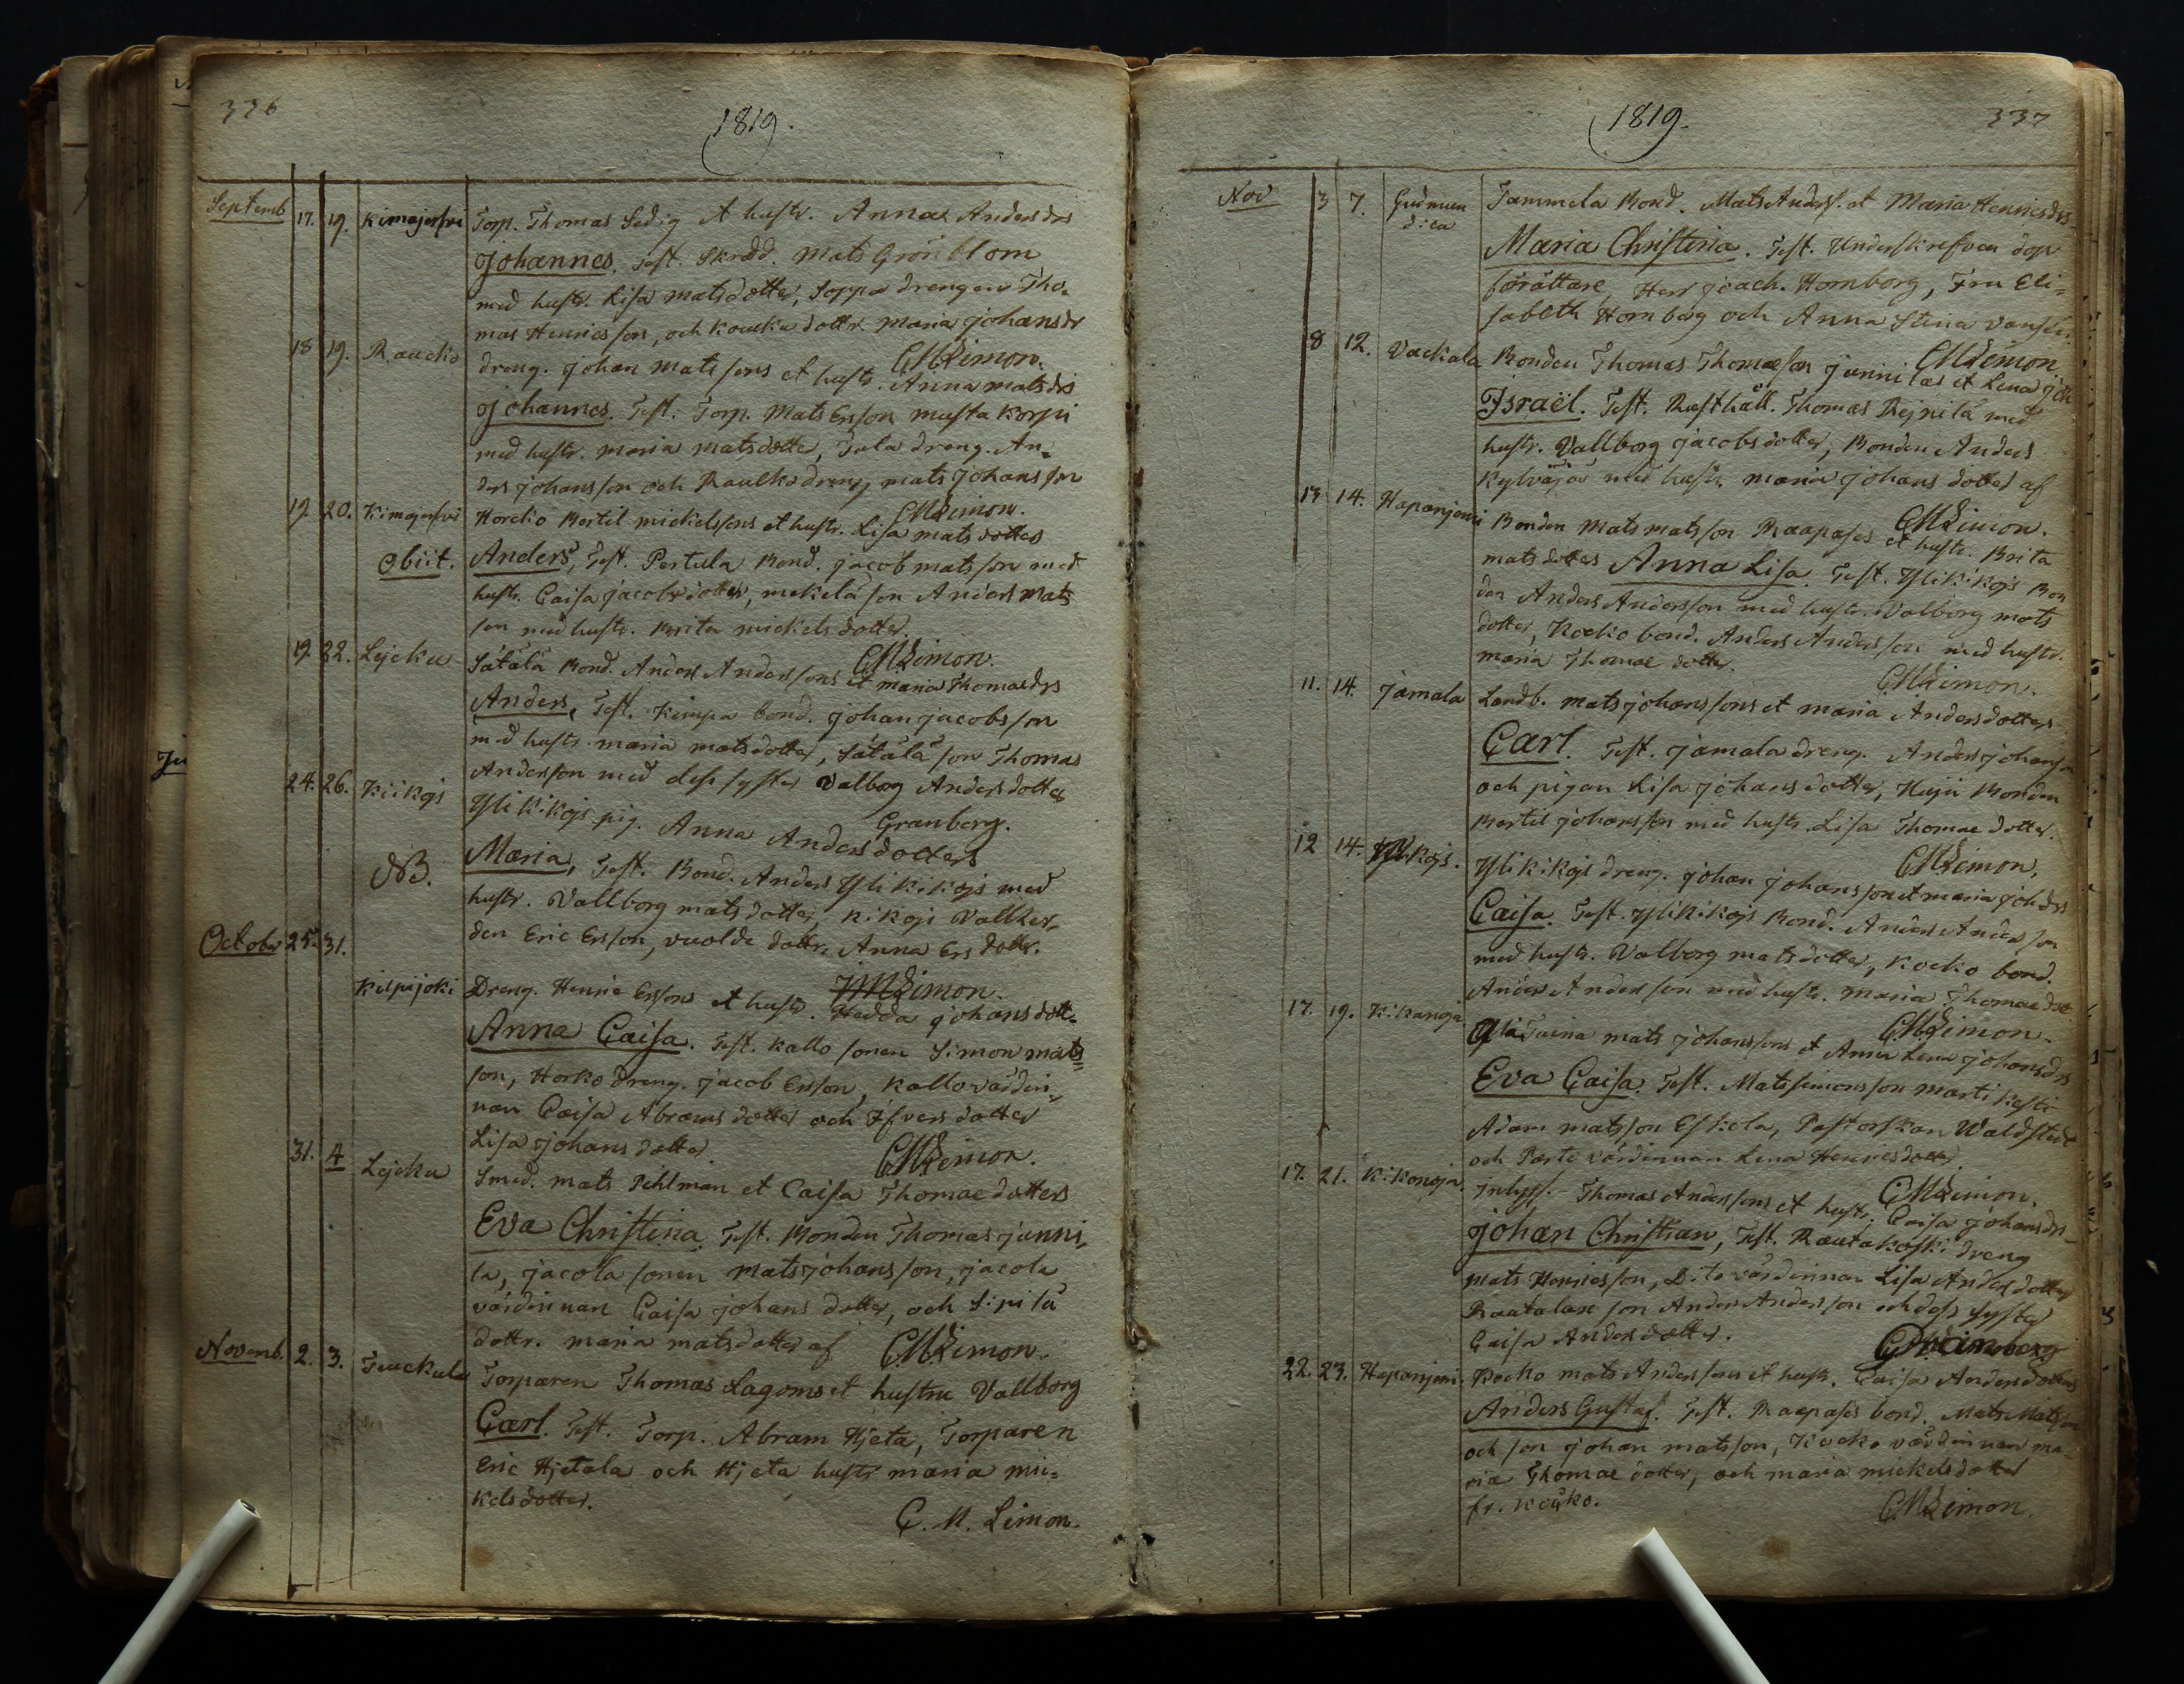 336
1819.
Septemb 17. 19. Kimejerfvi Torp. Thomas Sedig et hustr. Anna Andersdrs
Johannes. Test. Skrädd. Mats Grönblom
med hustr. Lisa matsdotter, Soppa drengen Tho=
mas Henricsson, och Koucku dottr. Maria Johansdr
CMLimon.
18 19. Raucko dreng. Johan Matssons et hustr. Anna matsdrs
Johannes. Test. Torp. Mats Ersson musta Korpi
med hustr. Maria matsdotter, Tula dreng. An=
ders Johansson och Raucko dreng mats Johansson
CMLimon.
19. 20. Kimejerfvi Horcko Bertil mickelssons et hustr. Lisa matsdotters
Obiit. Anders, Test. Pertula Bond. Jacob matsson med
hustr. Caisa Jacobsdotter, mekelä son Anders Mats
son med hustr. Brita mickelsdotter.
CMLimon.
19. 22. Lejcku Sätälä Bond. Anders Anderssons et maria Thomaedrs
Anders, Test. Kimpa bond. Johan Jacobsson
med hustr. maria matsdotter, Sätälä son Thomas
Andersson med dess syster Valborg Andersdotter
Granberg.
24. 26. Kiikojs Ylikikojs pig. Anna Andersdotters
NB. Maria, Test. Bond. Anders Ylikikojs med
hustr. Vallborg matsdotter, Kikojs Vallker,
den Eric Ersson, vuolde dottr. Anna Ersdottr.
JMLimon.
October 25. 31. Kilpijoki Dreng. Henric Erssons et hustr. Hedda Johansdott=
Anna Caisa. Test. Kallo sonen Simon mats=
son, Horko dreng. Jacob Ersson, Kallo värdin=
nan Caisa Abramsdotter och Ifvers dotter
Lisa Johansdotter
CMLimon.
31. 4 Lejcku Smed. mats Pihlman et Caisa Thomaedotters
Eva Christina. Test. Bonden Thomas Junni,
la, Jacola sonen Mats Johansson, Jacola
värdinnan Caisa Johansdotter, och Sipilä
dottr. maria matsdotter af CMLimon.
Novemb. 2. 3. Teuckula Torparen Thomas Lagoms et hustru Vallborg
Carl. Test. Torp. Abram Hjeta, Torparen
Eric Hjetala och Hjeta hustr maria mic=
kelsdotter.
C. M. Limon.
337
1819.
Nov 3 7. Gudmun Tammela Bond. Mats Anders. et Maria Henricsdrs
Maria Christina. Test. Underskrefven dop
förättare, Herr Joach. Homborg, Fru Eli=
sabeth Homborg och Anna Stina
CMLimon
8 12. Vackala Bonden Thomas Thomasson Junnilas et Lena Joh
Israël. Test. Rusthåll. Thomas Rejnilä med
hustr. Vallborg Jacobsdotter, Bonden Anders
Kylväjä med hustr. maria Johansdotter af
CMLimon.
13 14. Haparjenni Bonden Mats matsson Raapases et hustr. Brita
matsdotters Anna Lisa. Test. Ylikikojs Bon
den Anders Andersson med hustr. Valborg mats
dotter, Kocko bond. Anders Andersson med hustr.
maria Thomae dotter.
CMLimon.
11. 14. Jamala Landb. mats Johanssons et maria Andersdotters
Carl. Test. Jamala dreng. Anders Johansson
och pigan Lisa Johansdotter, Huju Bonden
Bertil Johansson med hustr. Lisa Thomae dotter.
CMLimon,
12 14. Kikojs. Ylikikojs dreng. Johan Johanssons et maria Johdrs
Caisa. Test. Ylikikojs Bond. Anders Andersson
med hustr. Valborg matsdotter, Kocko bond.
Anders Andersson med hustr. Maria Thomaedot
CMLimon.
17. 19. Kikanoja mats Johanssons et Anna Lena Johansdrs
Eva Caisa. Test. Mats simonsson Marti Kesti
Adam matsson Eskola, Pastorskan Waldstedt
och Perte värdinnan Lena Henricsdotter.
CMLimon.
17. 21. Kikonoja. Inhys. Thomas Anderssons et hustr. Caisa Johansdrs
Johan Christian, Test. Rautakoski dreng
mats Henricsson, Dito värdinnan Lisa Andersdotter
Raatalan son Anders Andersson och dess syster
Caisa Andersdotter.
22. 23. Haparjeni. Kocko mats Anderssons et hustr. Caisa Andersdotters
Anders Gustaf. Test. Raapases bond. Mats Matsson
och son Johan matsson, Kocko värdinnan ma
ria Thomae dotter, och maria mickelsdotter
fr. Kocko.
CMLimon.